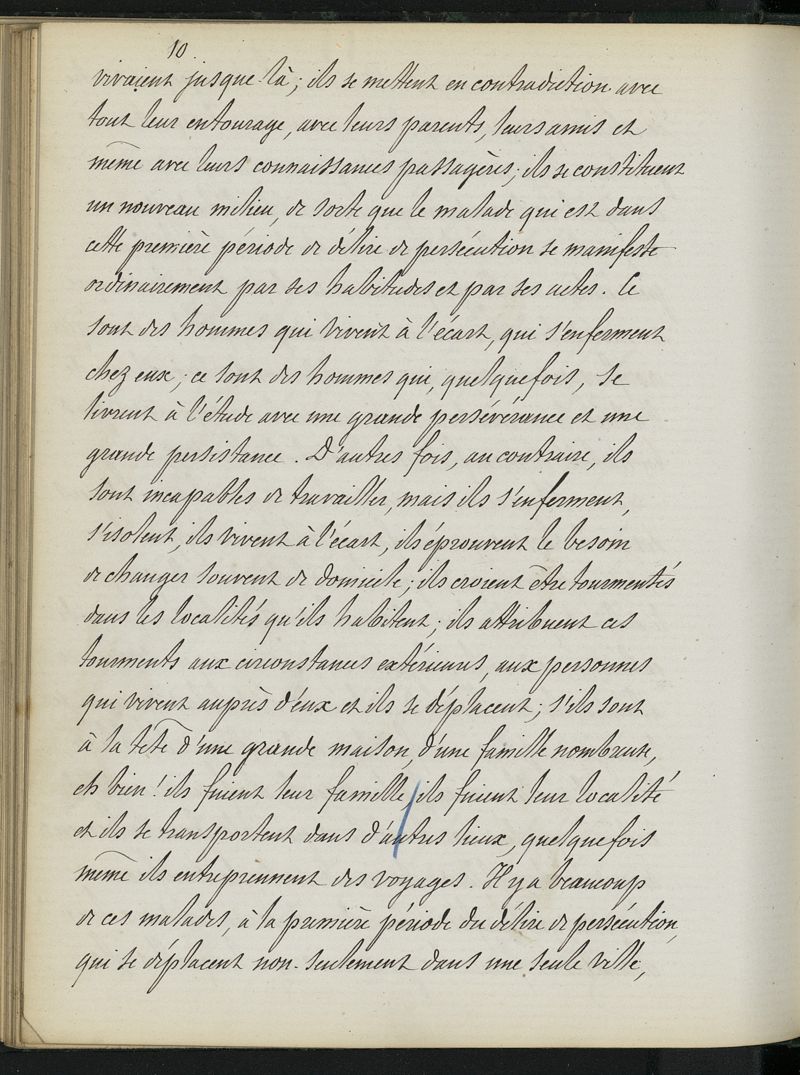 10
vivaient jusque-là; ils se mettent en contradiction avec
tout leur entourage, avec leurs parents, leurs amis et
même avec leurs connaissances passagères; ils se constituent
un nouveau milieu, de sorte que le malade qui est dans
cette première période de délire de persécution se manifeste
ordinairement par ses habitudes et par ses actes. Ce
sont des hommes qui vivent à l'écart, qui s'enferment
chez eux; ce sont des hommes qui, quelquefois, se
livrent à l'étude avec une grande persévérance et une
grande persistance. D'autres fois, au contraire, ils
sont incapables de travailler, mais ils s'enferment,
s'isolent, ils vivent à l'écart, ils éprouvent le besoin
de changer souvent de domicile; ils croient être tourmentés
dans les localités qu'ils habitent; ils attribuent ces
tourments aux circonstances extérieures, aux personnes
qui vivent auprès d'eux et ils se déplacent; s'ils sont
à la tête d'une grande maison, d'une famille nombreuse,
eh bien! ils fuient leur famille, ils fuient leur localité
et ils se transportent dans d'autres lieux, quelquefois
même ils entreprennent des voyages. Il y a beaucoup
de ces malades, à la première période du délire de persécution,
qui se déplacent non-seulement dans une seule ville,